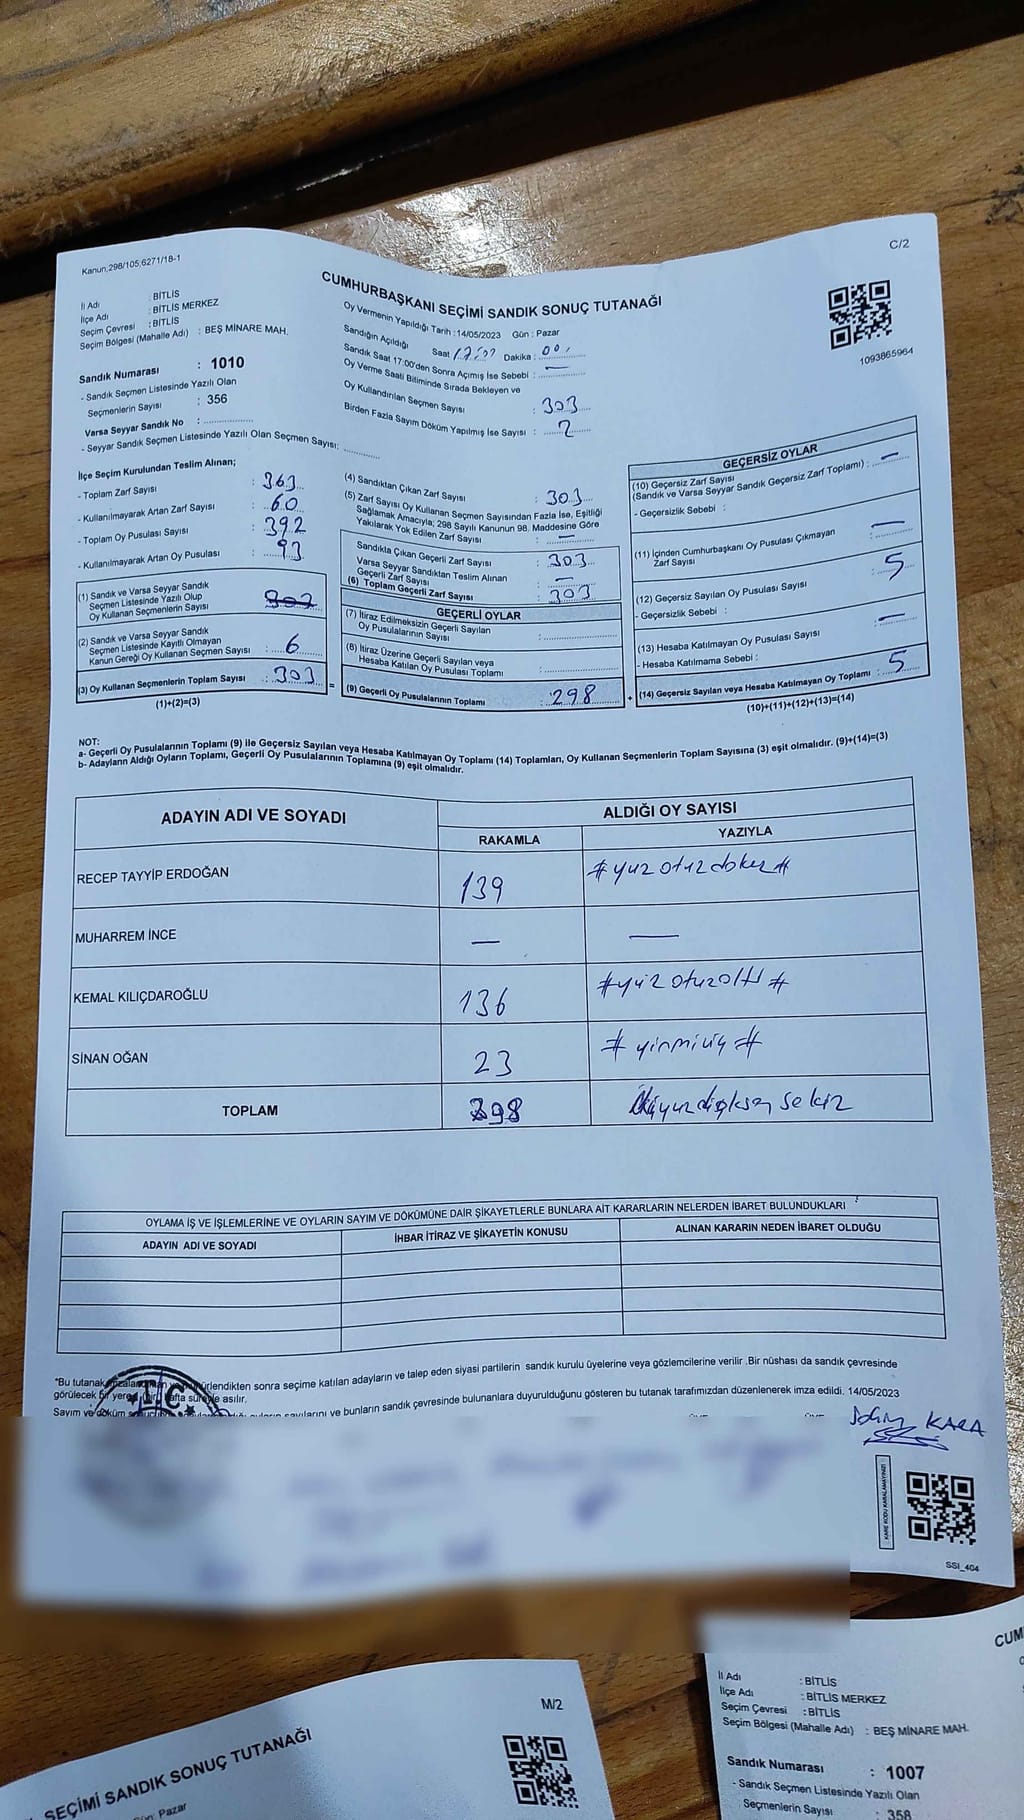 Kanun:298/105;6271/18-1
C/2
CUMHURBAŞKANI SEÇİMİ SANDIK SONUÇ TUTANAĞI
İl Adı : BİTLİS
İlçe Adı : BİTLİS MERKEZ
Seçim Çevresi : BİTLİS
Seçim Bölgesi (Mahalle Adı) : BEŞ MİNARE MAH.
Sandık Numarası : 1010
- Sandık Seçmen Listesinde Yazılı Olan
Seçmenlerin Sayısı : 356
Varsa Seyyar Sandık No :
- Seyyar Sandık Seçmen Listesinde Yazılı Olan Seçmen Sayısı:
Oy Vermenin Yapıldığı Tarih :14/05/2023 Gün : Pazar
Sandığın Açıldığı Saat Dakika : 00
Sandık Saat 17:00'den Sonra Açımış İse Sebebi : —
Oy Verme Saati Bitiminde Sırada Bekleyen ve
Oy Kullandırılan Seçmen Sayısı : 303
Birden Fazla Sayım Döküm Yapılmış İse Sayısı : 2
1093865964
İlçe Seçim Kurulundan Teslim Alınan;
- Toplam Zarf Sayısı : 363
- Kullanılmayarak Artan Zarf Sayısı : 60
- Toplam Oy Pusulası Sayısı : 392
- Kullanılmayarak Artan Oy Pusulası : 93
(1) Sandık ve Varsa Seyyar Sandık
Seçmen Listesinde Yazılı Olup
Oy Kullanan Seçmenlerin Sayısı
(2) Sandık ve Varsa Seyyar Sandık
Seçmen Listesinde Kayıtlı Olmayan
Kanun Gereği Oy Kullanan Seçmen Sayısı : 6
(3) Oy Kullanan Seçmenlerin Toplam Sayısı : 303 =
(1)+(2)=(3)
(4) Sandıktan Çıkan Zarf Sayısı : 303
(5) Zarf Sayısı Oy Kullanan Seçmen Sayısından Fazla İse, Eşitliği
Sağlamak Amacıyla; 298 Sayılı Kanunun 98. Maddesine Göre
Yakılarak Yok Edilen Zarf Sayısı : —
Sandıkla Çıkan Geçerli Zarf Sayısı : 303
Varsa Seyyar Sandıktan Teslim Alınan
Geçerli Zarf Sayısı : —
(6) Toplam Geçerli Zarf Sayısı : 303
GEÇERLİ OYLAR
(7) İtiraz Edilmeksizin Geçerli Sayılan
Oy Pusulalarının Sayısı :
(8) İtiraz Üzerine Geçerli Sayılan veya
Hesaba Katılan Oy Pusulası Toplamı :
(9) Geçerli Oy Pusulalarının Toplamı : 298 +
GEÇERSİZ OYLAR
(10) Geçersiz Zarf Sayısı
(Sandık ve Varsa Seyyar Sandık Geçersiz Zarf Toplamı) : —
- Geçersizlik Sebebi :
(11) İçinden Cumhurbaşkanı Oy Pusulası Çıkmayan
Zarf Sayısı : —
(12) Geçersiz Sayılan Oy Pusulası Sayısı : 5
- Geçersizlik Sebebi :
(13) Hesaba Katılmayan Oy Pusulası Sayısı : —
- Hesaba Katılmama Sebebi :
(14) Geçersiz Sayılan veya Hesaba Katılmayan Oy Toplamı : 5
(10)+(11)+(12)+(13)=(14)
NOT:
a- Geçerli Oy Pusulalarının Toplamı (9) ile Geçersiz Sayılan veya Hesaba Katılmayan Oy Toplamı (14) Toplamları, Oy Kullanan Seçmenlerin Toplam Sayısına (3) eşit olmalıdır. (9)+(14)=(3)
b- Adayların Aldığı Oyların Toplamı, Geçerli Oy Pusulalarının Toplamına (9) eşit olmalıdır.
ADAYIN ADI VE SOYADI ALDIĞI OY SAYISI
RAKAMLA YAZIYLA
RECEP TAYYİP ERDOĞAN 139 #yuzotuzdokuz#
MUHARREM İNCE — —
KEMAL KILIÇDAROĞLU 136 #yüzotuzaltı#
SİNAN OĞAN 23 #yirmiüç#
TOPLAM 298 ikiyuzdoksansekiz
OYLAMA İŞ VE İŞLEMLERİNE VE OYLARIN SAYIM VE DÖKÜMÜNE DAİR ŞİKAYETLERLE BUNLARA AİT KARARLARIN NELERDEN İBARET BULUNDUKLARI
ADAYIN ADI VE SOYADI İHBAR İTİRAZ VE ŞİKAYETİN KONUSU ALINAN KARARIN NEDEN İBARET OLDUĞU
"Bu tutanak sonra seçime katılan adayların ve talep eden siyasi partilerin sandık kurulu üyelerine veya gözlemcilerine verilir .Bir nüshası da sandık çevresinde
görülecek bir yere asılır.
Sayım ve döküm sayılarını ve bunların sandık çevresinde bulunanlara duyurulduğunu gösteren bu tutanak tarafımızdan düzenlenerek imza edildi. 14/05/2023
T.C.
KARA
KARE KODU KARALAMAYINIZ!
SSI_404
M/2
SEÇİMİ SANDIK SONUÇ TUTANAĞI
Gün: Pazar
CUM
İl Adı : BİTLİS
İlçe Adı : BİTLİS MERKEZ
Seçim Çevresi : BİTLİS
Seçim Bölgesi (Mahalle Adı) : BEŞ MİNARE MAH.
Sandık Numarası : 1007
- Sandık Seçmen Listesinde Yazılı Olan
Seçmenlerin Sayısı : 358